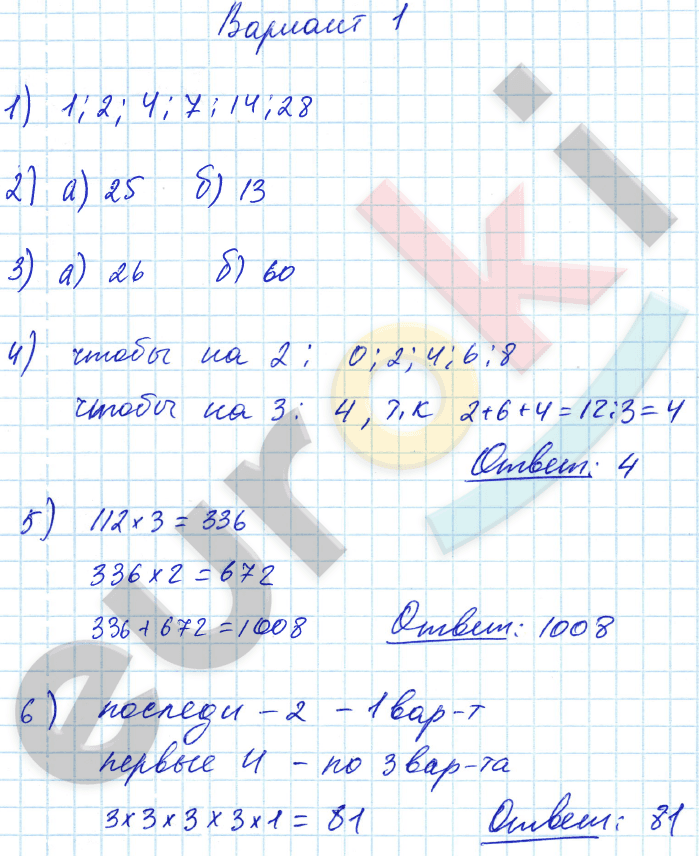 Вариант 1
1) 1; 2; 4; 7; 14; 28
2) а) 25 б) 13
3) а) 26 б) 60
4) чтобы на 2: 0; 2; 4; 6; 8
чтобы на 3: 4, т.к 2+6+4=12:3=4
Ответ: 4
5) 112×3=336
336×2=672
336+672=1008 Ответ: 1008
6) последн – 2 – 1 вар-т
первые 4 – по 3 вар-та
3×3×3×3×1=81 Ответ: 81
euroki